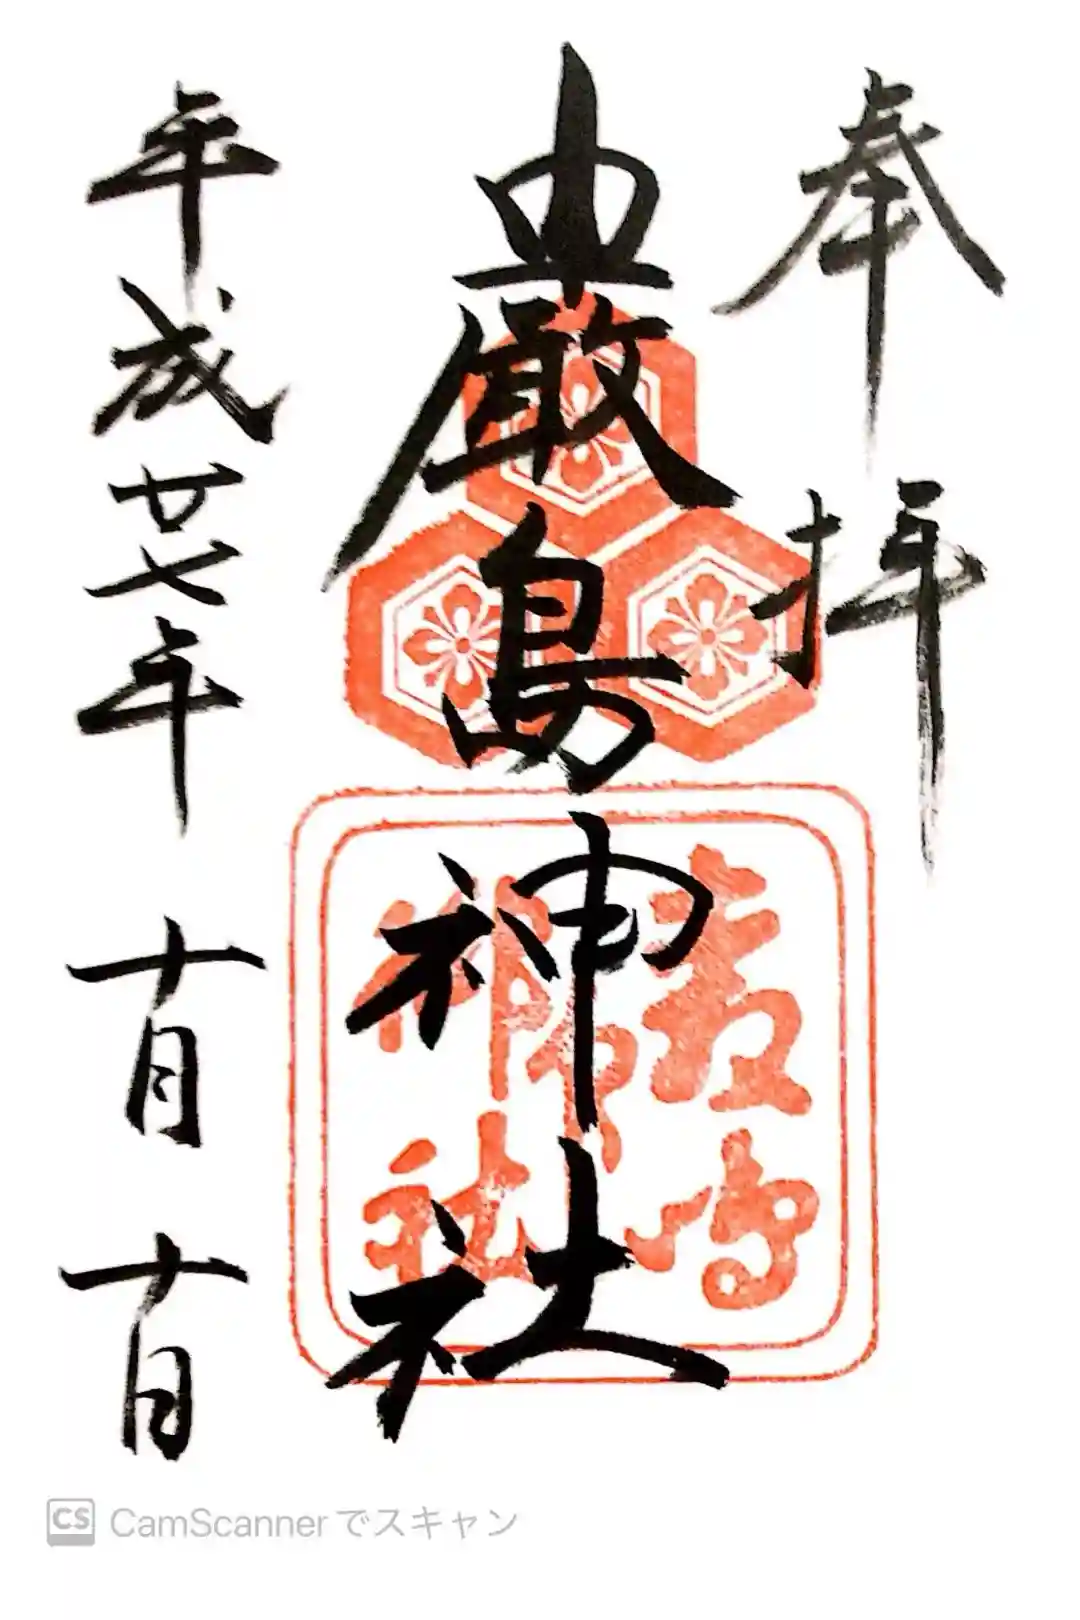 奉拝
嚴島神社
平成廿七年 十月 十日
CamScannerでスキャン